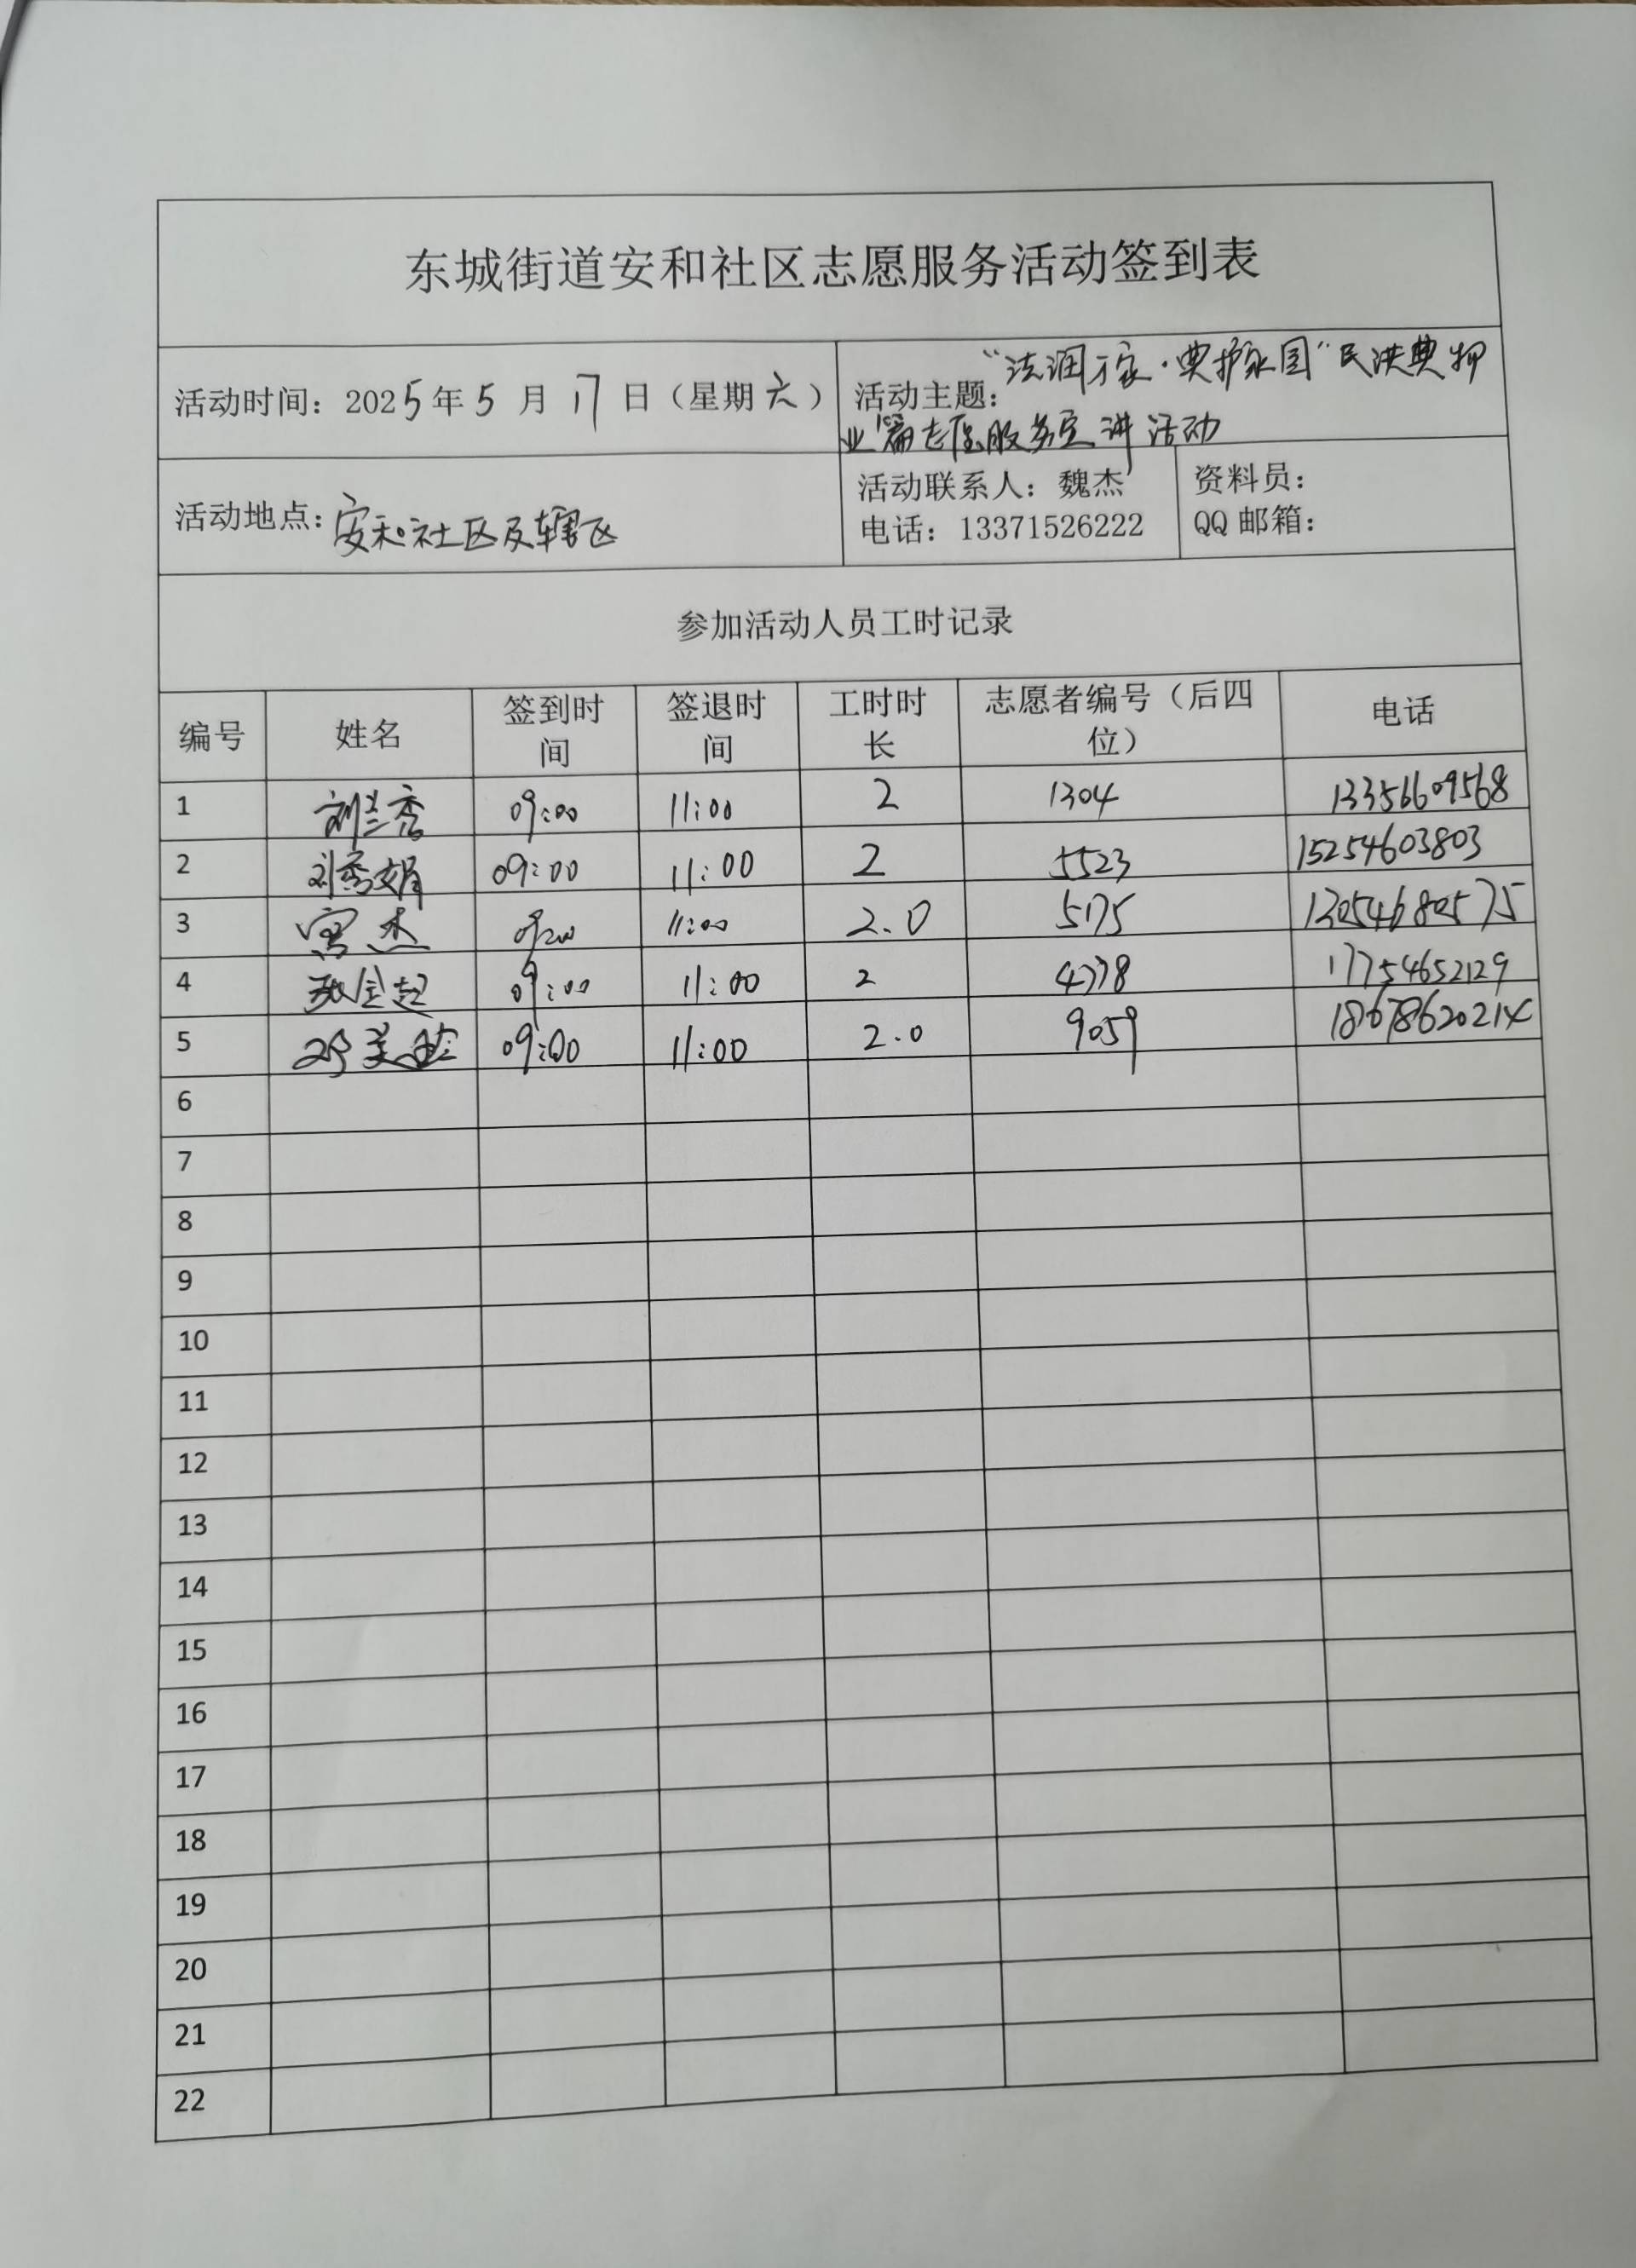 东城街道安和社区志愿服务活动签到表
活动时间：2025年5月17日（星期六）
活动主题：“法润万家·典护家园”民法典物
业篇志愿服务宣讲活动
活动地点：安和社区及辖区
活动联系人：魏杰
电话：13371526222
资料员：
QQ邮箱：
参加活动人员工时记录
编号 姓名 签到时间 签退时间 工时时长 志愿者编号（后四位） 电话
1 刘兰香 09:00 11:00 2 1304 13356609568
2 刘秀娟 09:00 11:00 2 5523 15254603803
3 宫杰 09:00 11:00 2.0 5175 13054680575
4 09:00 11:00 2 4778 17754652129
5 09:00 11:00 2.0 9059 18678620214
6
7
8
9
10
11
12
13
14
15
16
17
18
19
20
21
22